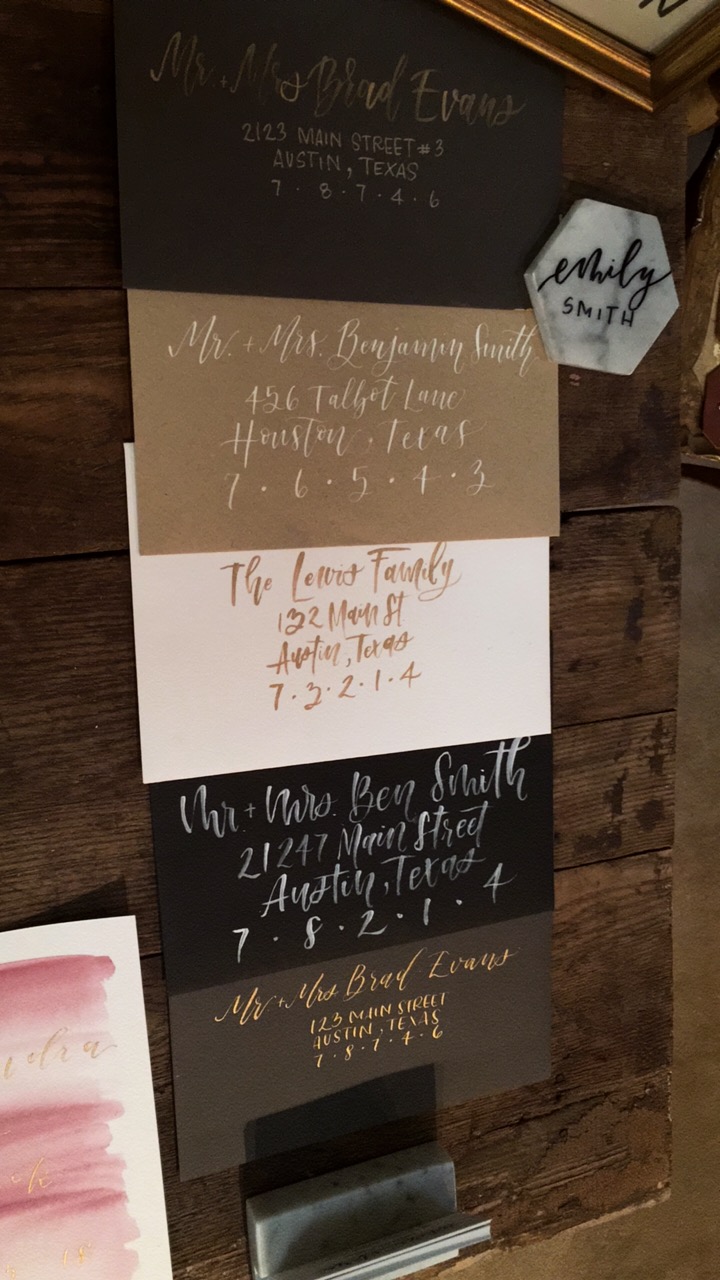 Mr. + Mrs Brad Evans
2123 MAIN STREET #3
AUSTIN, TEXAS
7 · 8 · 7 · 4 · 6
emily
SMITH
Mr. + Mrs. Benjamin Smith
456 Talbot Lane
Houston, Texas
7 · 6 · 5 · 4 · 3
The Lewis Family
132 Main St
Austin, Texas
7 · 3 · 2 · 1 · 4
Mr + Mrs. Ben Smith
21247 Main Street
Austin, Texas
7 · 8 · 2 · 1 · 4
Mr + Mrs Brad Evans
123 MAIN STREET
AUSTIN, TEXAS
7 · 8 · 7 · 4 · 6